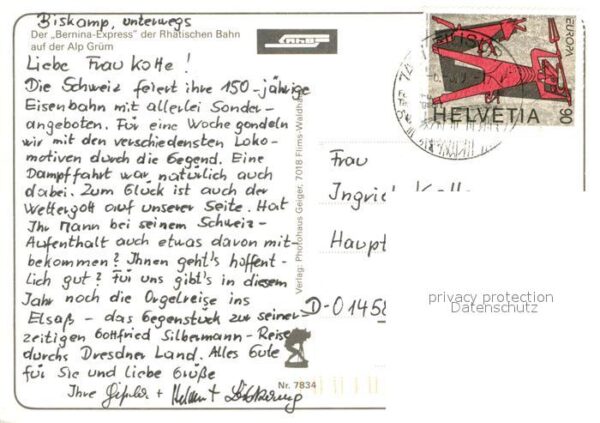 Biskamp, unterwegs
Der „Bernina-Express" der Rhätischen Bahn
auf der Alp Grüm
Liebe Frau Kotte!
Die Schweiz feiert ihre 150-jährige
Eisenbahn mit allerlei Sonder-
angeboten. Für eine Woche gondeln
wir mit den verschiedensten Loko-
motiven durch die Gegend. Eine
Dampffahrt war natürlich auch
dabei. Zum Glück ist auch der
Wettergott auf unserer Seite. Hat
Ihr Mann bei seinem Schweiz-
Aufenthalt auch etwas davon mit-
bekommen? Ihnen geht's hoffent-
lich gut? Für uns gibt's in diesem
Jahr noch die Orgelreise ins
Elsaß - das Gegenstück zur seiner-
zeitigen Gottfried Silbermann-Reise
durchs Dresdner Land. Alles Gute
für Sie und liebe Grüße
Ihre + Helmut
Verlag: Photohaus Geiger, 7018 Flims-Waldhaus
Nr. 7834
EUROPA
HELVETIA
90
Frau
Ingrid Kotte
Haupt
D-01458
privacy protection
Datenschutz